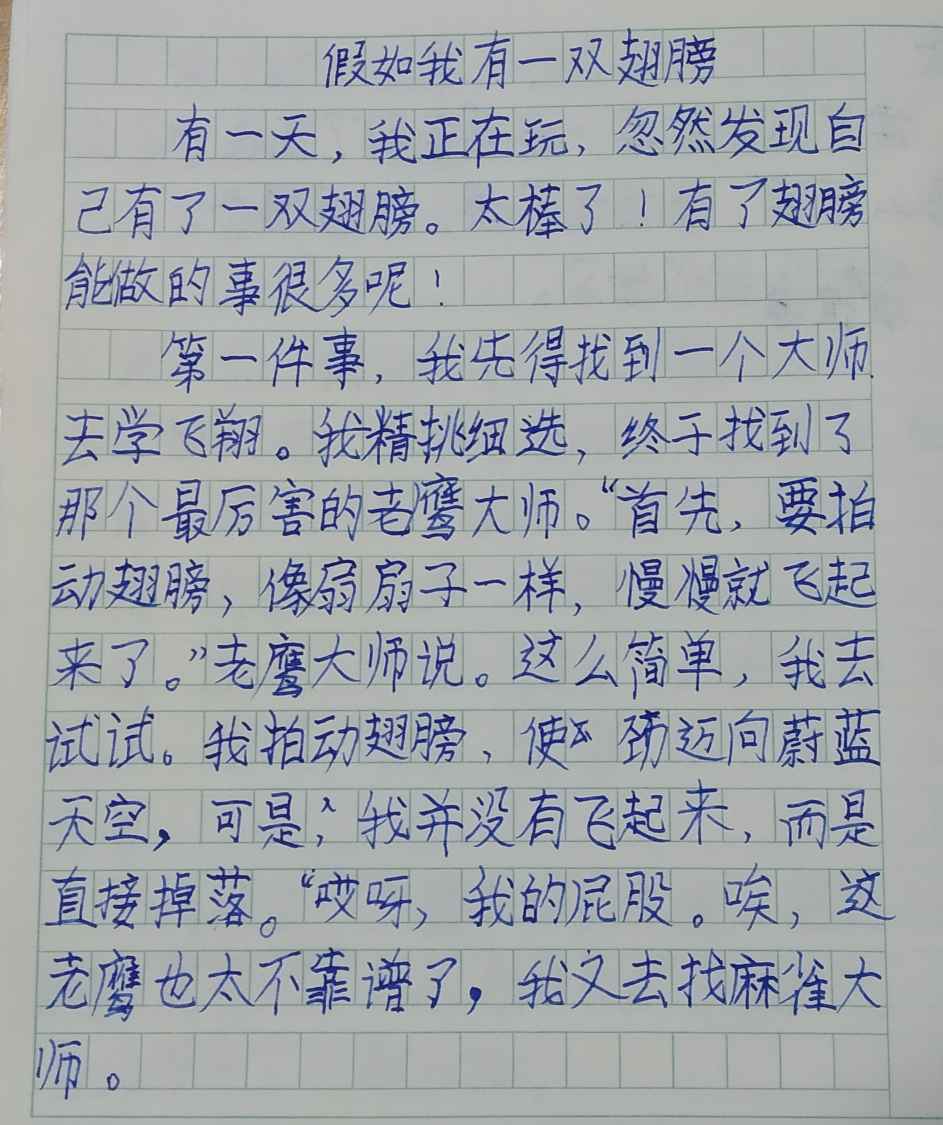 假如我有一双翅膀
有一天，我正在玩，忽然发现自
己有了一双翅膀。太棒了！有了翅膀
能做的事很多呢！
第一件事，我先得找到一个大师
去学飞翔。我精挑细选，终于找到了
那个最厉害的老鹰大师。“首先，要拍
动翅膀，像扇扇子一样，慢慢就飞起
来了。”老鹰大师说。这么简单，我去
试试。我拍动翅膀，使劲迈向蔚蓝
天空，可是，我并没有飞起来，而是
直接掉落。“哎呀，我的屁股。唉，这
老鹰也太不靠谱了，我又去找麻雀大
师。